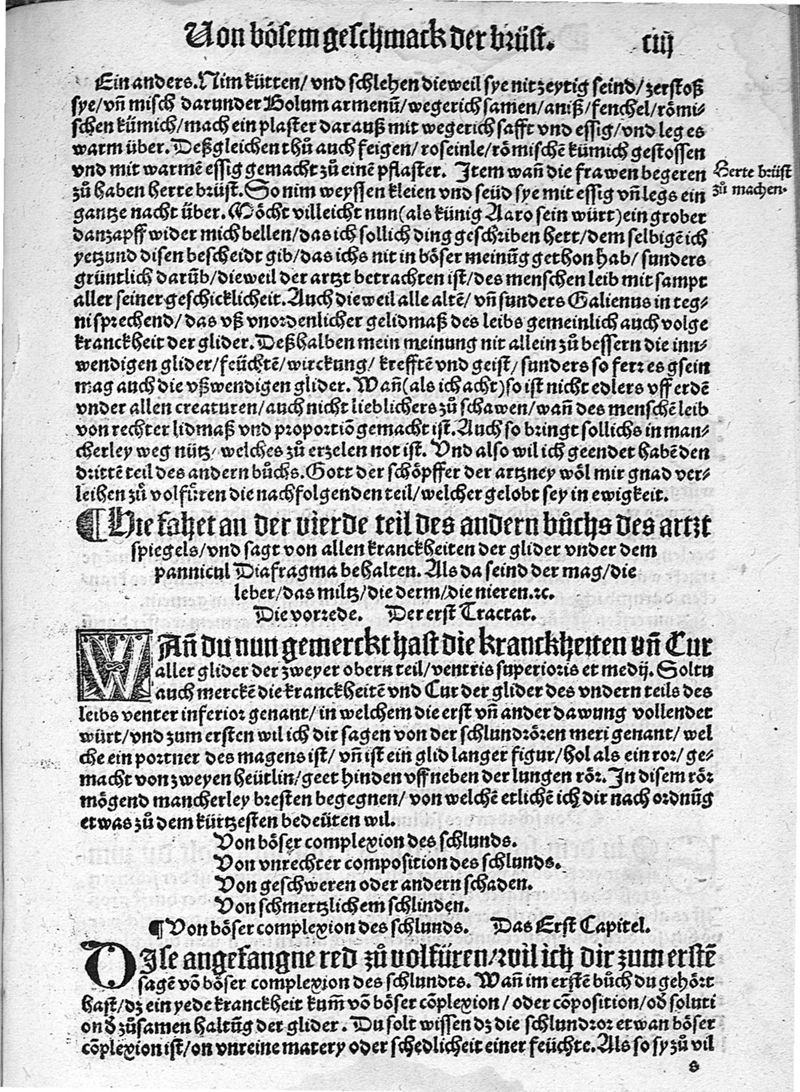 Von bösem geschmack der brüst. ciij
Ein anders. Nim kütten/ vnd schlehen dieweil sye nit zeytig seind/ zerstoß
sye/ vñ misch darunder Bolum armenũ/ wegerich samen/ aniß/ fenchel/ römi⸗
schen kümich/ mach ein plaster darauß mit wegerich safft vnd essig/ vnd leg es
warm über. Deßgleichen thů auch feigen/ roseinle/ römischẽ kümich gestossen
vnd mit warmẽ essig gemacht zů einẽ pflaster. Item wañ die frawen begeren
zů haben herte brüst. So nim weyssen kleien vnd seüd sye mit essig vñ legs ein
Herte brüst
zů machen.
gantze nacht über. Möcht villeicht nun (als künig Aaro sein würt) ein grober
danzapff wider mich bellen/ das ich sollich ding geschriben hett/ dem selbigẽ ich
yetzund disen bescheidt gib/ das ichs nit in böser meinũg gethon hab/ sunders
grüntlich darũb/ dieweil der artzt betrachten ist/ des menschen leib mit sampt
aller seiner geschicklicheit. Auch dieweil alle altẽ/ vñ sunders Galienus in teg⸗
ni sprechend/ das vß vnordenlicher gelidmaß des leibs gemeinlich auch volge
kranckheit der glider. Deßhalben mein meinung nit allein zů bessern die inn⸗
wendigen glider/ feüchtẽ/ wirckung/ krefften vnd geist/ sunders so ferr es gsein
mag auch die vßwendigen glider. Wañ (als ich acht) so ist nicht edlers vff erdẽ
vnder allen creaturen/ auch nicht lieblichers zů schawen/ wañ des menschẽ leib
von rechter lidmaß vnd proportiõ gemacht ist. Auch so bringt sollichs in man⸗
cherley weg nütz/ welches zů erzelen not ist. Vnd also wil ich geendet habẽ den
drittẽ teil des andern bůchs. Gott der schöpffer der artzney wöl mir gnad ver⸗
leihen zů volfüren die nachfolgenden teil/ welcher gelobt sey in ewigkeit.
¶ Hie fahet an der vierde teil des andern bůchs des artzt
spiegels/ vnd sagt von allen kranckheiten der glider vnder dem
pannicul Diafragma behalten. Als da seind der mag/ die
leber/ das miltz/ die derm/ die nieren. ꝛc.
Die vorrede. Der erst Tractat.
WAñ du nun gemerckt hast die kranckheiten vñ Cur
aller glider der zweyer obern teil/ ventris superioris et medij. Soltu
auch merckẽ die kranckheitẽ vnd Cur der glider des vndern teils des
leibs venter inferior genant/ in welchem die erst vñ ander dawung vollendet
würt/ vnd zum ersten wil ich dir sagen von der schlundrören meri genant/ wel
che ein portner des magens ist/ vñ ist ein glid langer figur/ hol als ein ror/ ge⸗
macht von zweyen heütlin/ geet hinden vff neben der lungen rör. In disem rör
mögend mancherley bresten begegnen/ von welchẽ etlichẽ ich dir nach ordnũg
etwas zů dem kürtzesten bedeüten wil.
Von böser complexion des schlunds.
Von vnrechter composition des schlunds.
Von geschweren oder andern schaden.
Von schmertzlichem schlinden.
¶ Von böser complexion des schlunds. Das Erst Capitel.
DIse angefangne red zů volfüren/ wil ich dir zum erstẽ
sagẽ võ böser complexion des schlundts. Wañ im erstẽ bůch du gehört
hast/ dz ein yede kranckheit kum̃ võ böser cõplexion/ oder cõposition/ oď soluti
on ď zůsamen haltũg der glider. Du solt wissen dz die schlundror etwan böser
cõplexion ist/ on vnreine matery oder schedlicheit einer feüchte. Als so sy zů vil
s